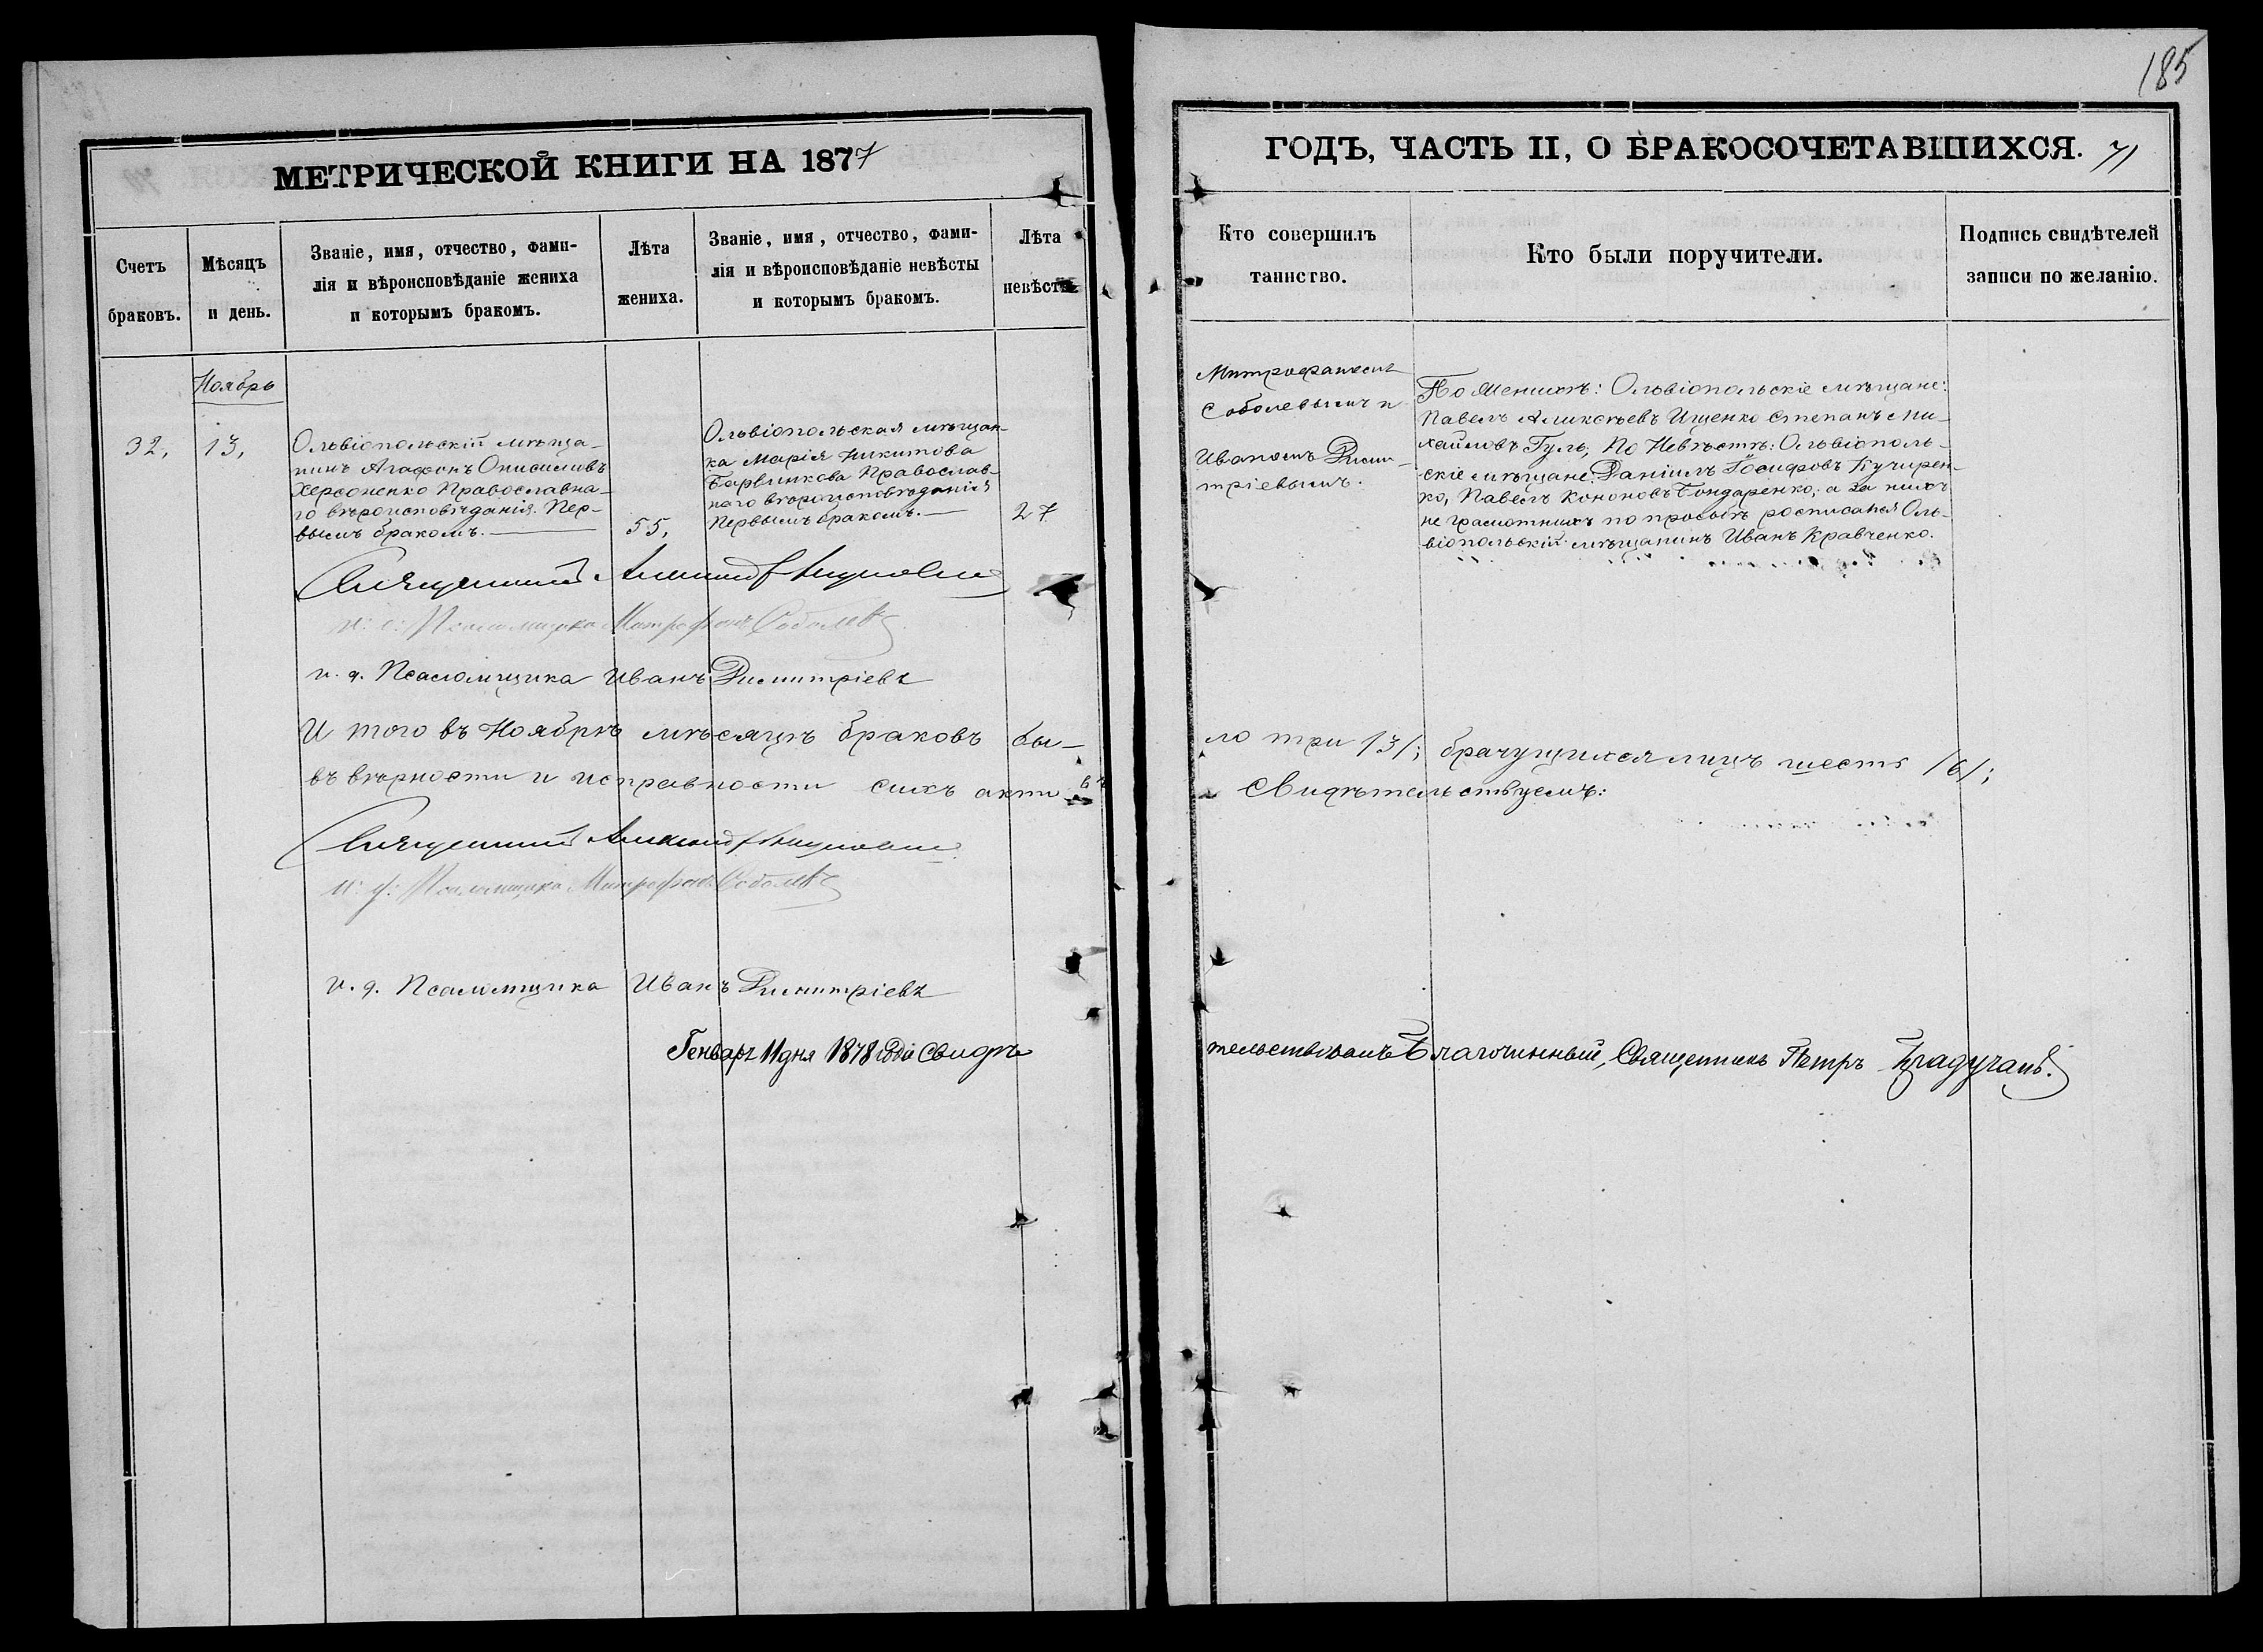 185
МЕТРИЧЕСКОЙ КНИГИ НА 1877
ГОДЪ, ЧАСТЬ II, О БРАКОСОЧЕТАВШИХСЯ. 71
Счетъ
браковъ.
Мѣсяцъ
и день.
Званіе, имя, отчество, фами-
лія и вѣроисповѣданіе жениха
и которымъ бракомъ.
Лѣта
жениха.
Званіе, имя, отчество, фами-
лія и вѣроисповѣданіе невѣсты
и которымъ бракомъ.
Лѣта
невѣсты
Кто совершилъ
таинство.
Кто были поручители.
Подпись свидѣтелей
записи по желанію.
Ноябрь
32,
13,
Ольвіопольскій мѣща-
нинъ Агафонъ Онисимовъ
Херсоненко Православна-
го вѣроисповѣданія. Пер-
вымъ бракомъ.
55,
Ольвіопольская мѣщан-
ка Марія Никитова
Барвинкова Православ-
наго вѣроисповѣданія
Первымъ бракомъ.
27
Митрофаномъ
Соболевымъ и
Иваномъ Дими-
тріевымъ.
По Женихѣ: Ольвіопольскіе мѣщане:
Павелъ Аликсѣевъ Ищенко Степанъ Ми-
хайловъ Гуль, По Невѣстѣ: Ольвіополь-
скіе мѣщане: Даніилъ Іосифовъ Кучирен-
ко, Павелъ Кононовъ Бондаренко, а за нихъ
не грамотныхъ по прозьбѣ росписался Оль-
віопольскій мѣщанинъ Иванъ Кравченко.
Священникъ
Псаломщика Митрофанъ Соболевъ
и. д. Псаломщика Иванъ Димитріевъ
И того въ Ноябрѣ мѣсяцѣ браковъ бы-
ло три /3/; брачущихся лицъ шесть /6/;
въ вѣрности и исправности сихъ актовъ
Свидѣтельствуемъ:
Священникъ
и. д. Псаломщика Митрофанъ Соболевъ
и. д. Псаломщика Иванъ Димитріевъ
Генваря 11 дня 1878 года Свидѣ-
тельствовалъ Благочинный, Священникъ Петръ